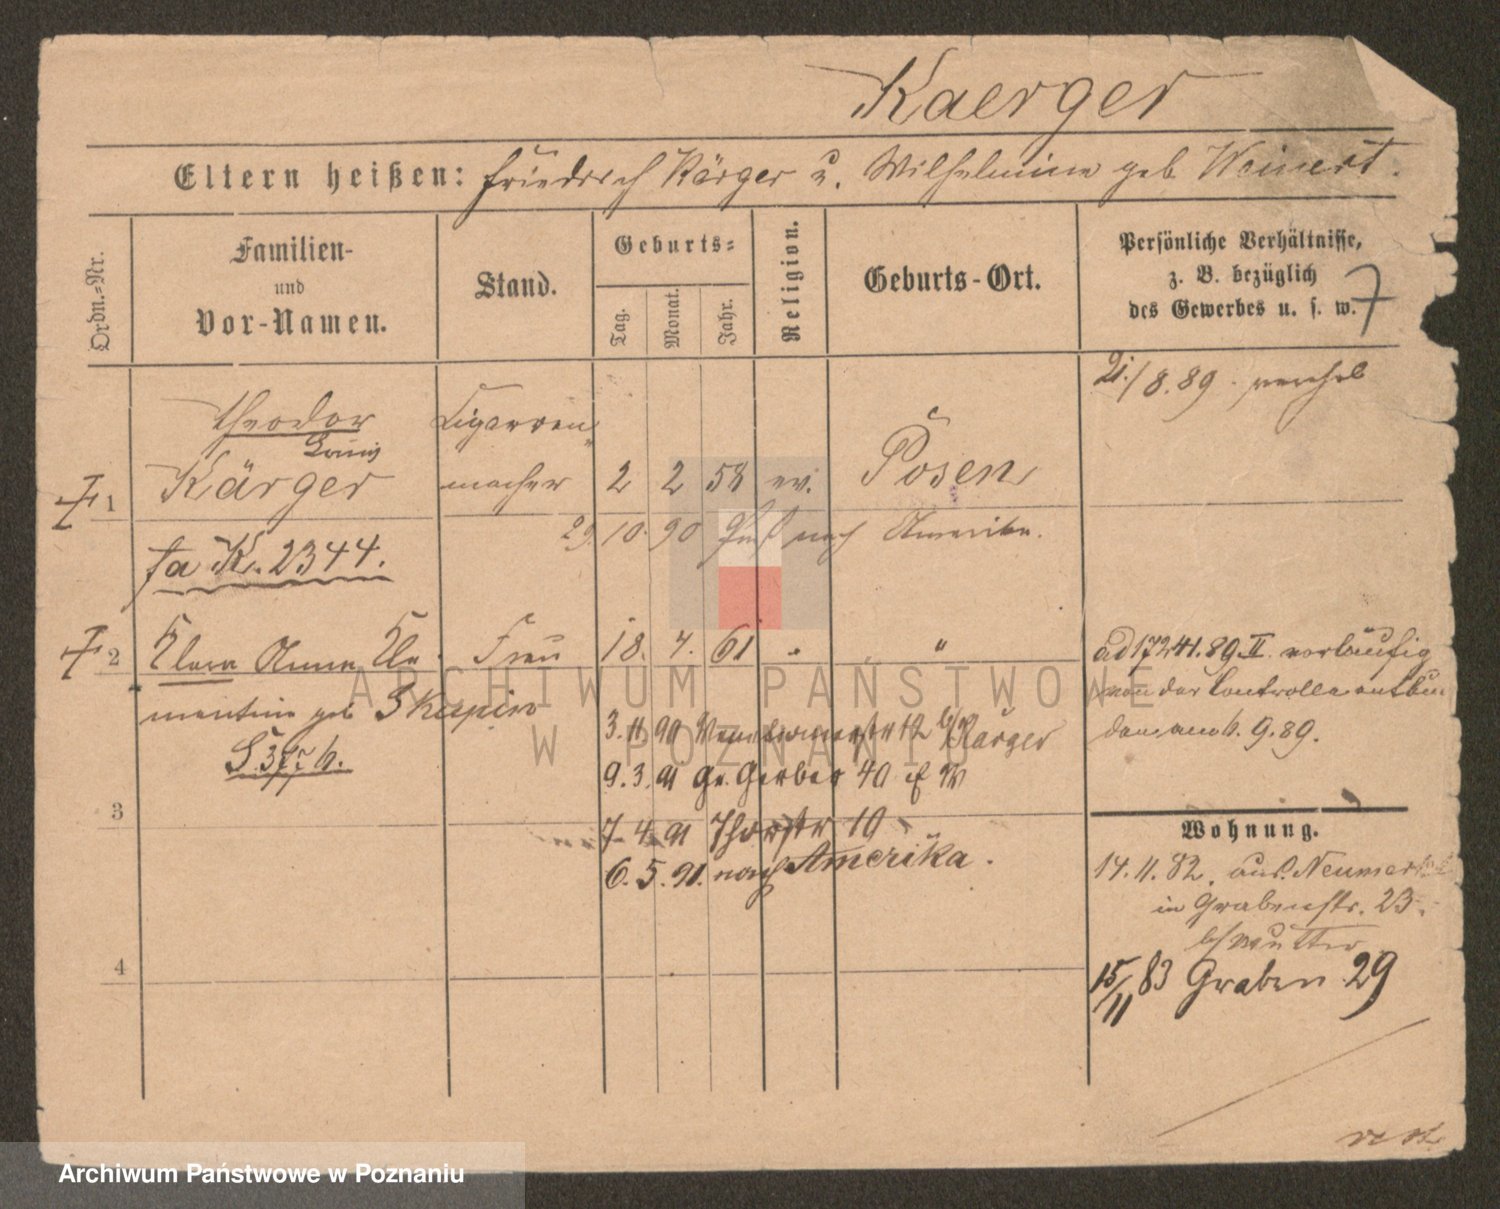 Kaerger
Eltern heißen: Friedrich Kärger u. Wilhelmine geb. Weinert.
Ordn.-Nr.
Familien-
und
Vor-Namen.
Stand.
Geburts-
Tag.
Monat.
Jahr.
Religion.
Geburts-Ort.
Persönliche Verhältnisse,
z. B. bezüglich
des Gewerbes u. s. w.
7
21./8.89. verehel
Theodor
Louis
Kärger
Cigarren
macher
1
2 2 58 ev. Posen
29. 10. 90 nach Amerika.
fa K. 2344.
2
Klara Anna Kle
mentine geb Skupin
Frau
18. 4. 61 " "
ad 17241.89.II. vorläufig
von der Controlle entbun
den am 6.9.89.
3.11.90 12 b/Kärger
9.3.91 Gr. Gerber 40
7.4.91 Thorstr 10
6.5.91. nach Amerika.
3
4
Wohnung.
14.11.82. aus Neumarkt
in Grabenstr. 23.
b/Mutter
15/11 83 Graben 29
ARCHIWUM PAŃSTWOWE
W POZNANIU
Archiwum Państwowe w Poznaniu